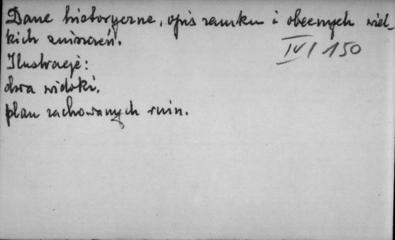 Dane historyczne, opis zamku i obecnych wiel-
kich zniszczeń.
IV/150
Ilustracje:
dwa widoki,
plan zachowanych ruin.